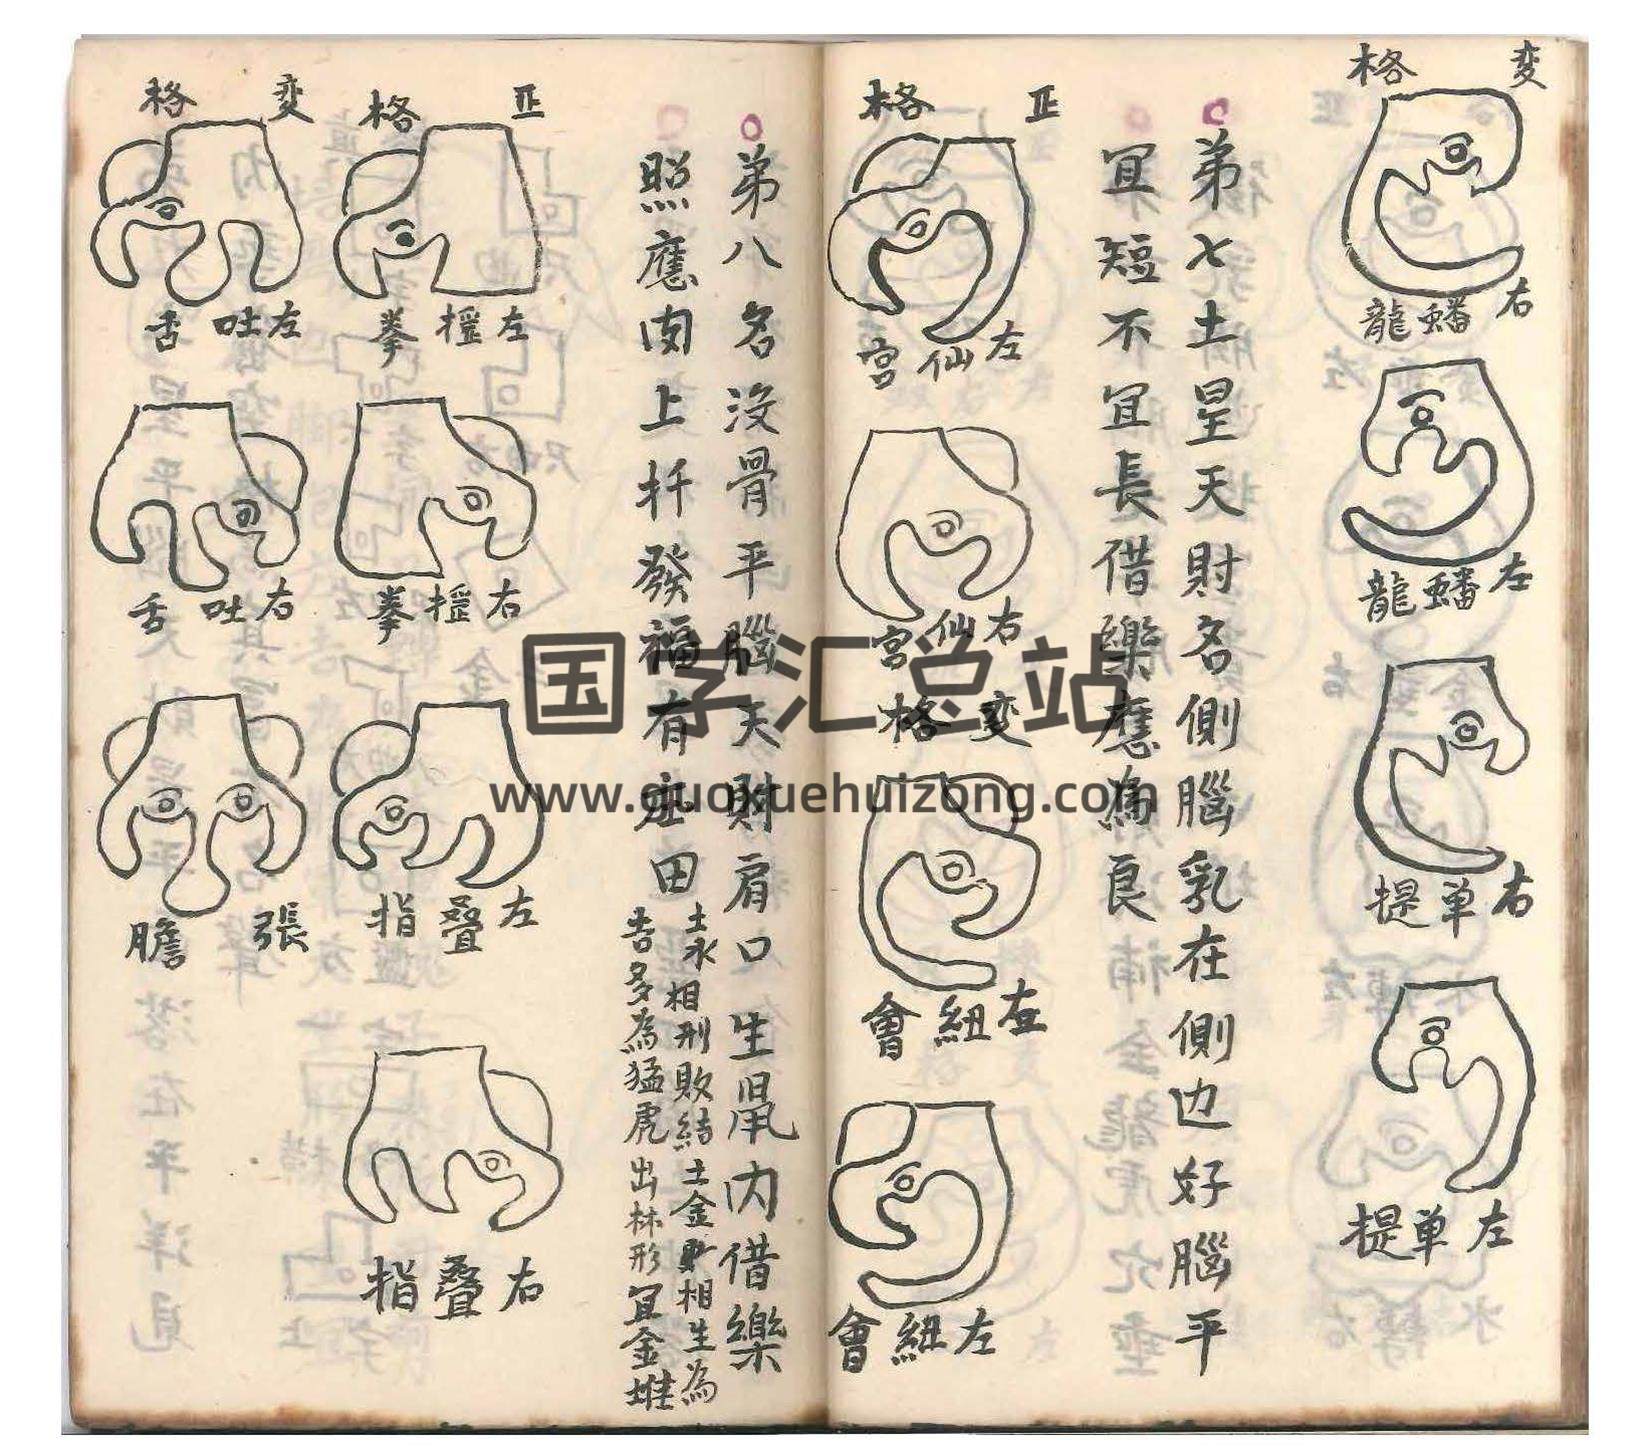 変格
右蟠龍
左蟠龍
右单提
左单提
弟七土星天財名側腦乳在側边好腦平
冝短不冝長借樂應為良
正格
左仙宮
右仙宮
変格
右紐會
左紐會
弟八名没骨平腦天財肩口生凹内借樂
照應肉上扦發福有庄田
土水相刑敗結土金相生為
吉多為猛虎出林形冝金堆
正格
左摳拳
右摳拳
左疊指
右疊指
変格
左吐舌
右吐舌
張膽
国学汇总站
www.guoxuehuizong.com